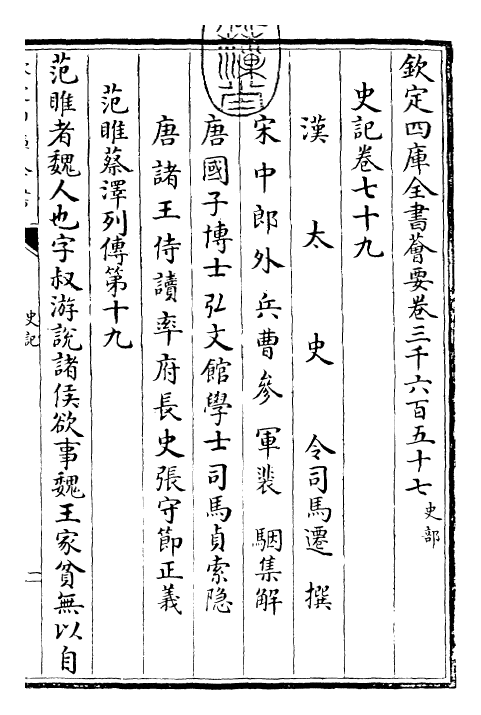 欽定四庫全書薈要卷三千六百五十七 史部
史記卷七十九
漢太史令司馬遷撰
宋中郎外兵曹參軍裴駰集解
唐國子博士弘文館學士司馬貞索隐
唐諸王侍讀率府長史張守節正義
范睢蔡澤列傳第十九
范睢者魏人也字叔游說諸侯欲事魏王家貧無以自
史記